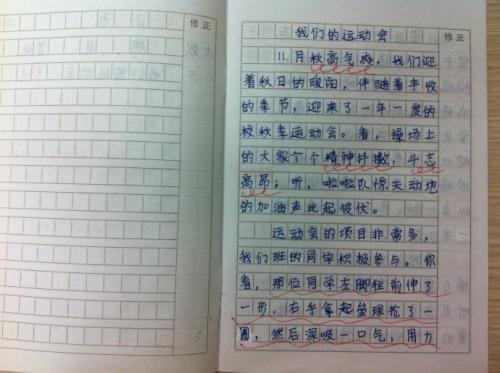 修正
修正
我们的运动会
11月秋高气爽，我们迎
着秋日的暖阳，伴随着丰收
的季节，迎来了一年一度的
校秋季运动会。看，操场上
的大家个个精神抖擞，斗志
高昂；听，啦啦队惊天动地
的加油声此起彼伏。
运动会的项目非常多，
我们班的同学积极参与。你
看，那位同学左脚往前伸了
一步，右手拿起垒球抡了一
圈，然后深吸一口气，用力